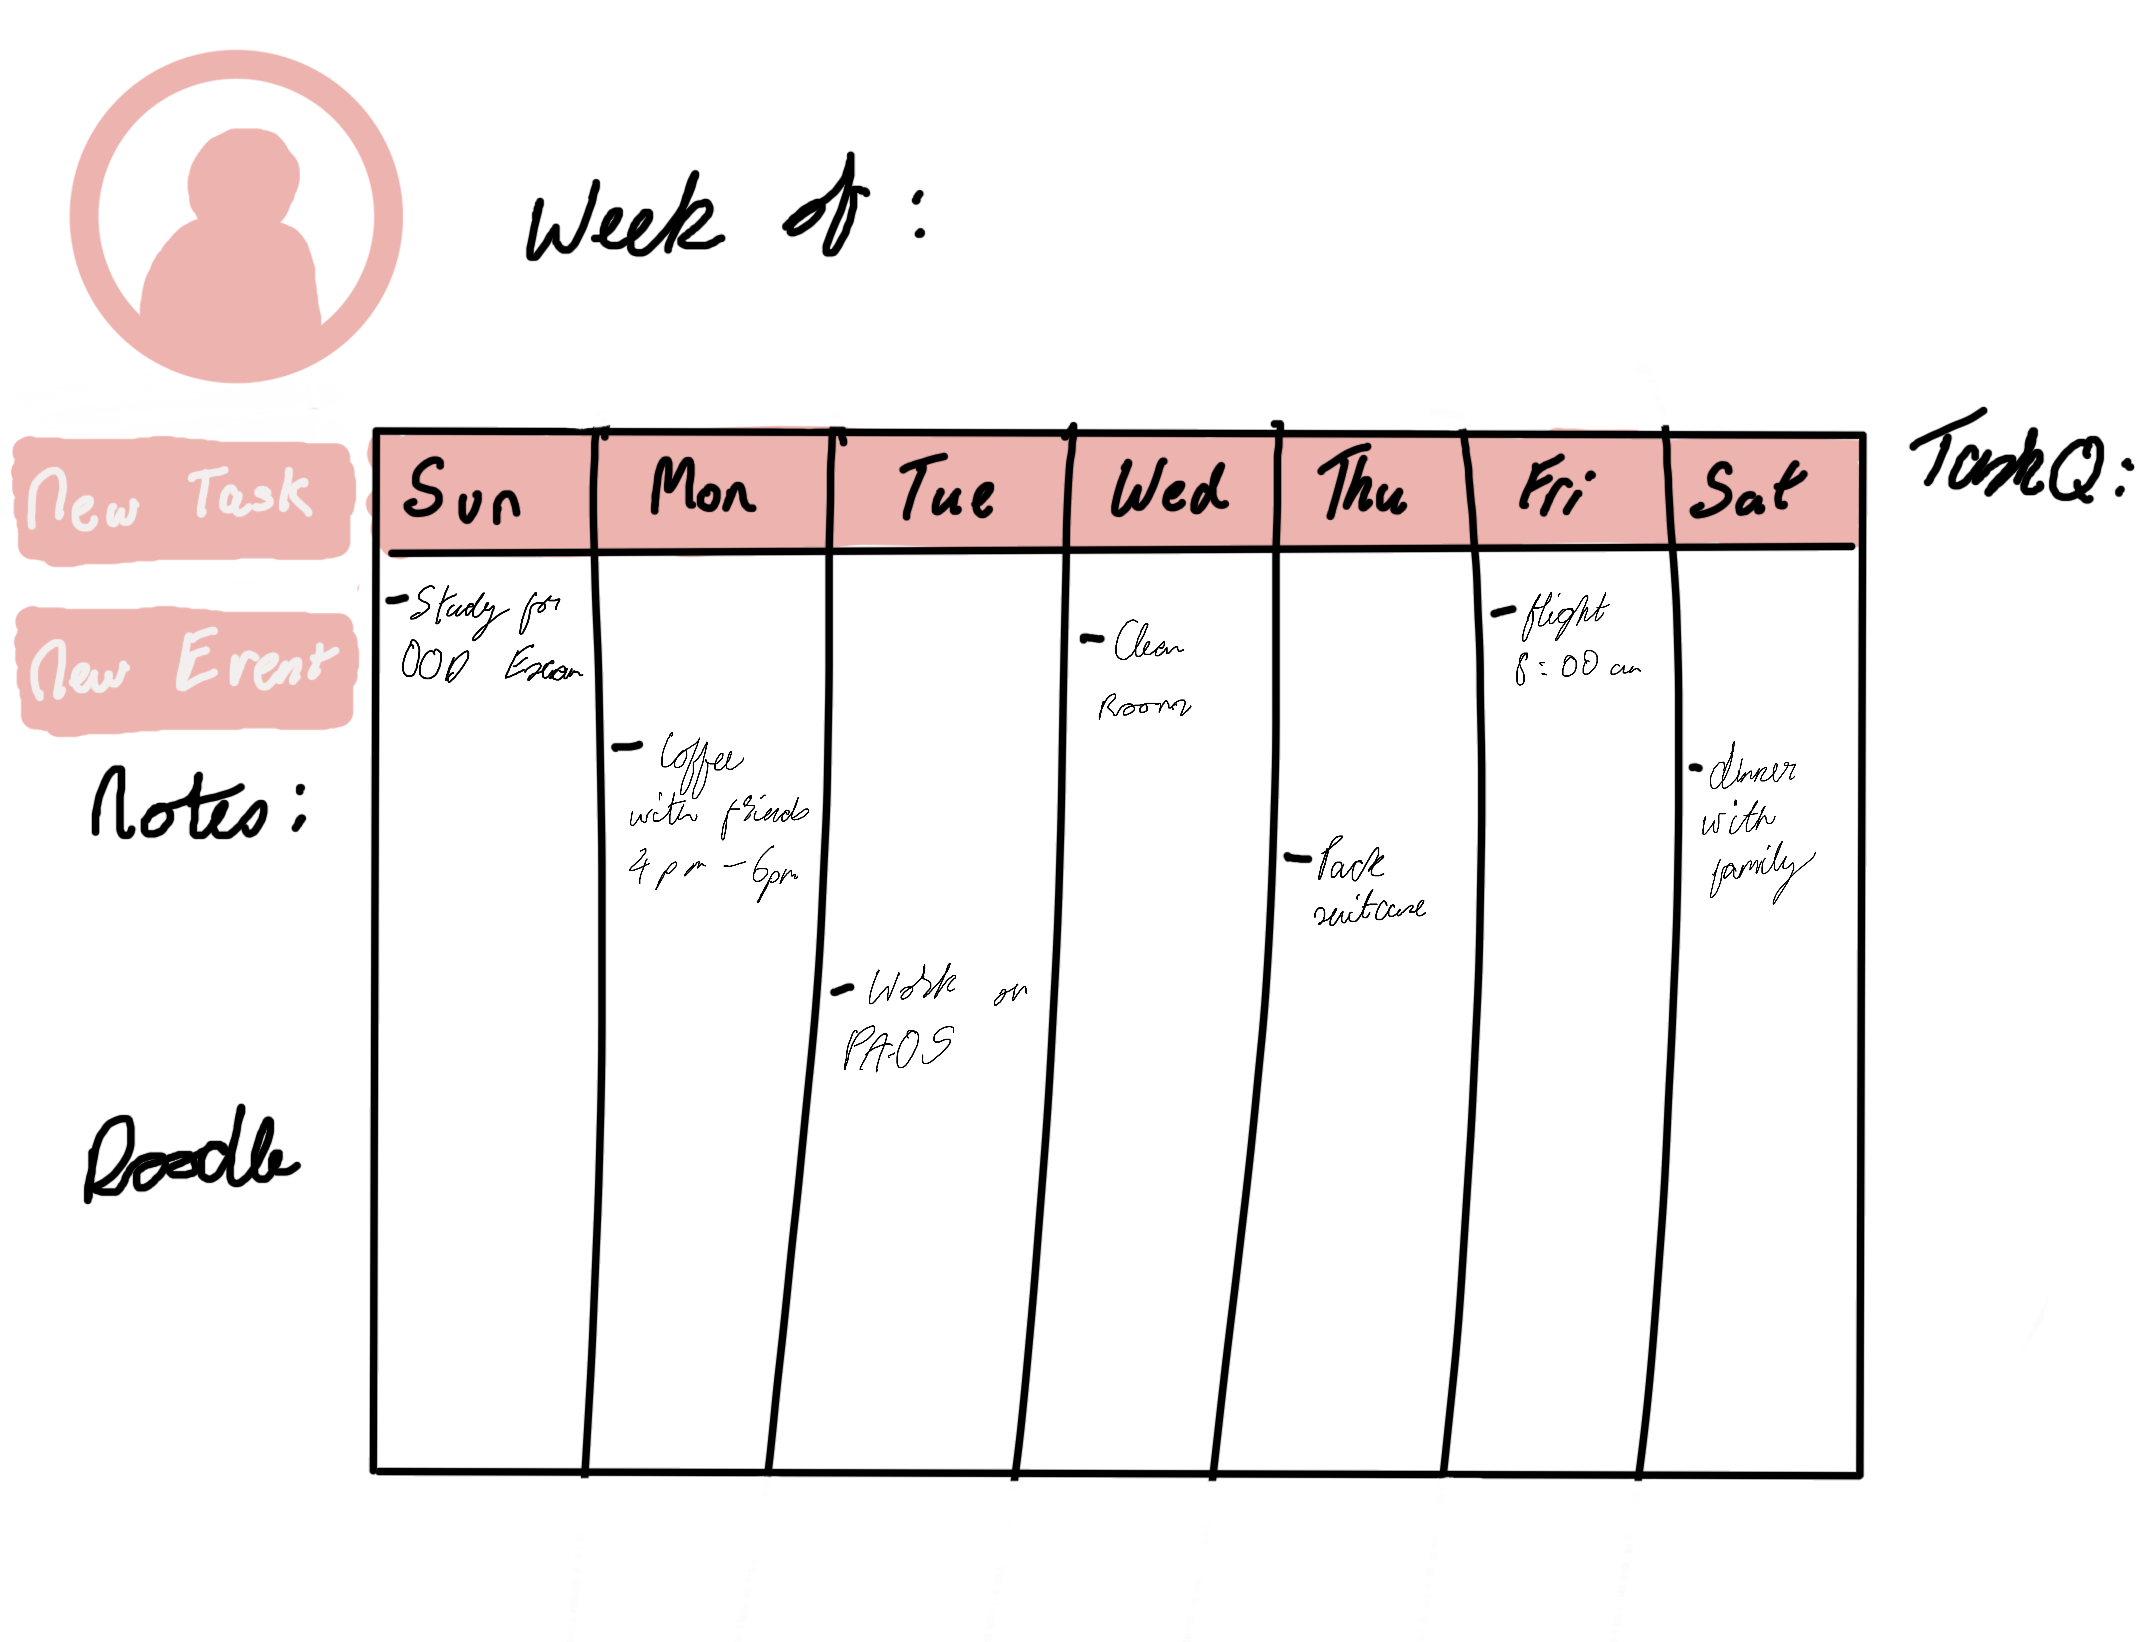 Week of :
New Task
New Event
Notes :
Doodle
Sun Mon Tue Wed Thu Fri Sat
- Study for
OOD Exam
- Coffee
with friends
4 pm - 6pm
- Work on
PA05
- Clean
Room
- Pack
suitcase
- flight
8:00 am
- dinner
with
family
TaskQ: